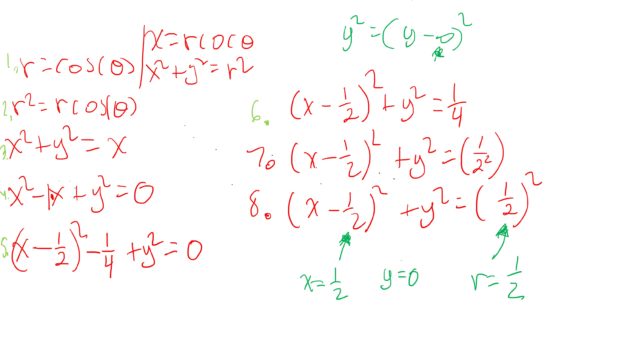 1. r=cos(θ)
x=rcoσθ
x²+y²=r²
2. r²=rcos(θ)
3. x²+y²=x
4. x²-1x+y²=0
5. (x-1/2)²-1/4+y²=0
y²=(y-0)²
6. (x-1/2)²+y²=1/4
7. (x-1/2)²+y²=(1/2²)
8. (x-1/2)²+y²=(1/2)²
x=1/2 y=0 r=1/2